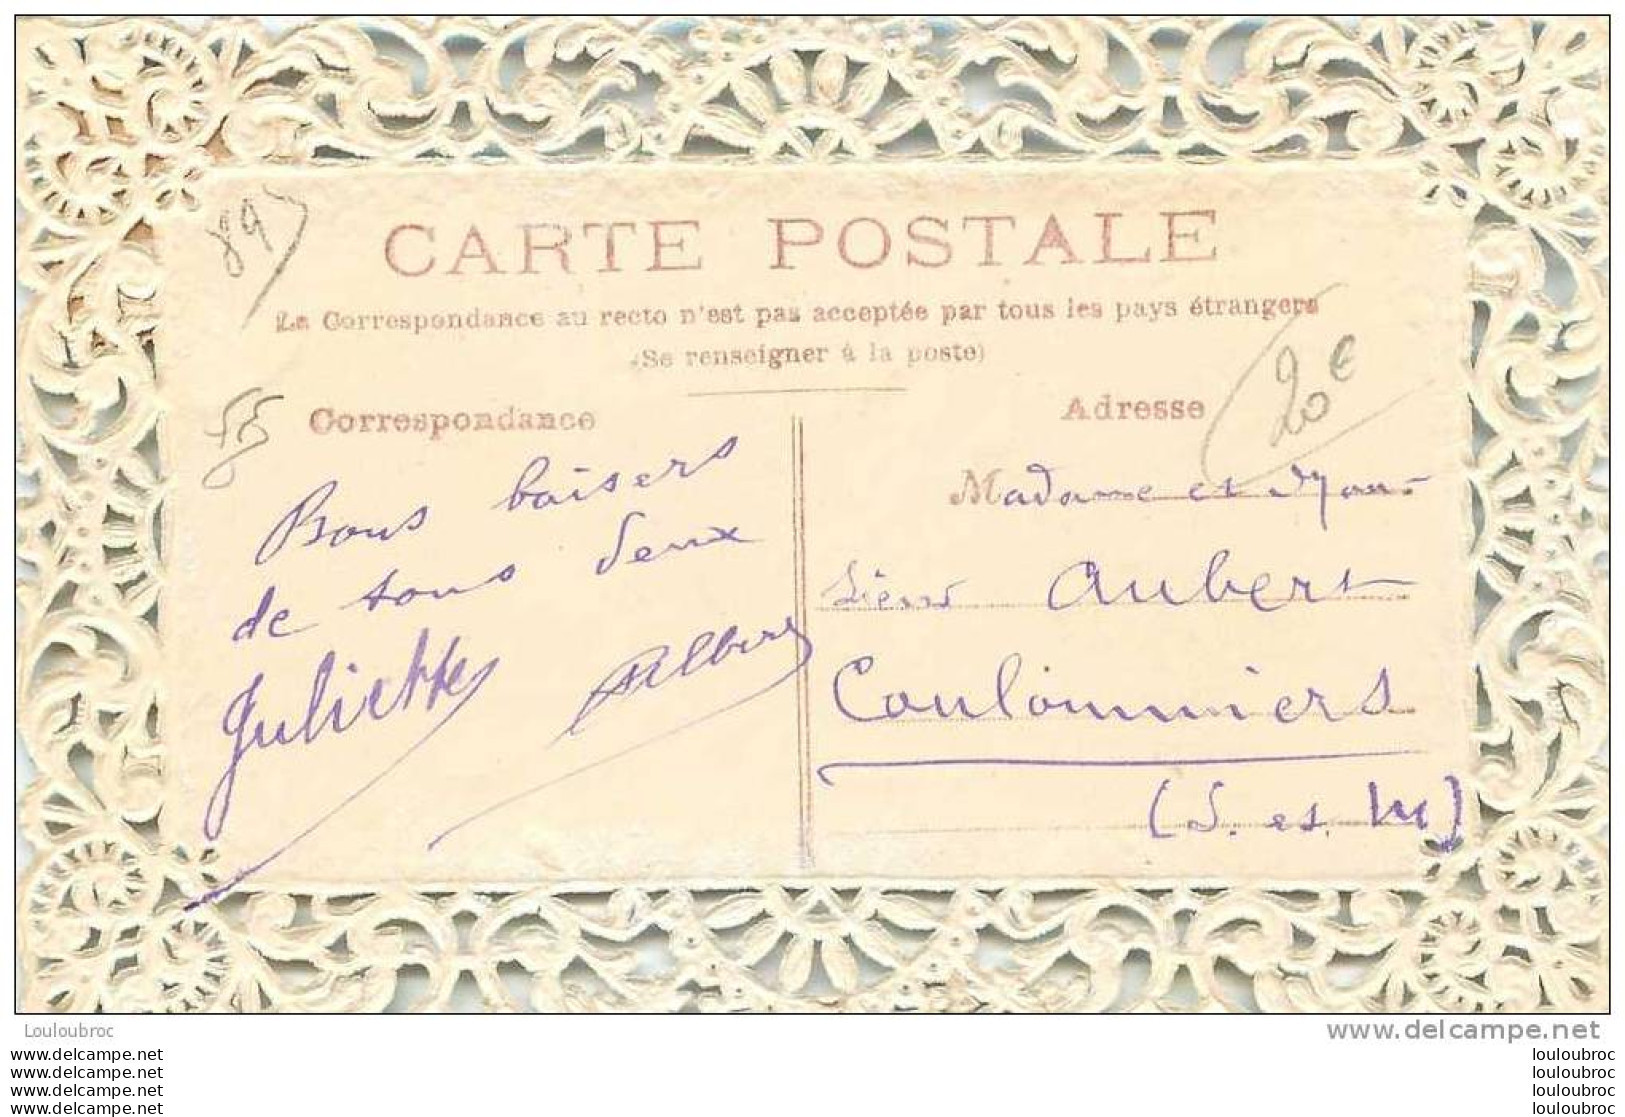 89
CARTE POSTALE
La Correspondance au recto n'est pas acceptée par tous les pays étrangers
(Se renseigner à la poste)
Correspondance
Bons baisers
de tous deux
Juliette Albert
Adresse
20€
Madame et Mon-
sieur Aubert
Coulommiers
(S. et. M)
Louloubroc
www.delcampe.net
www.delcampe.net
www.delcampe.net
www.delcampe.net
www.delcampe.net
louloubroc
louloubroc
louloubroc
louloubroc